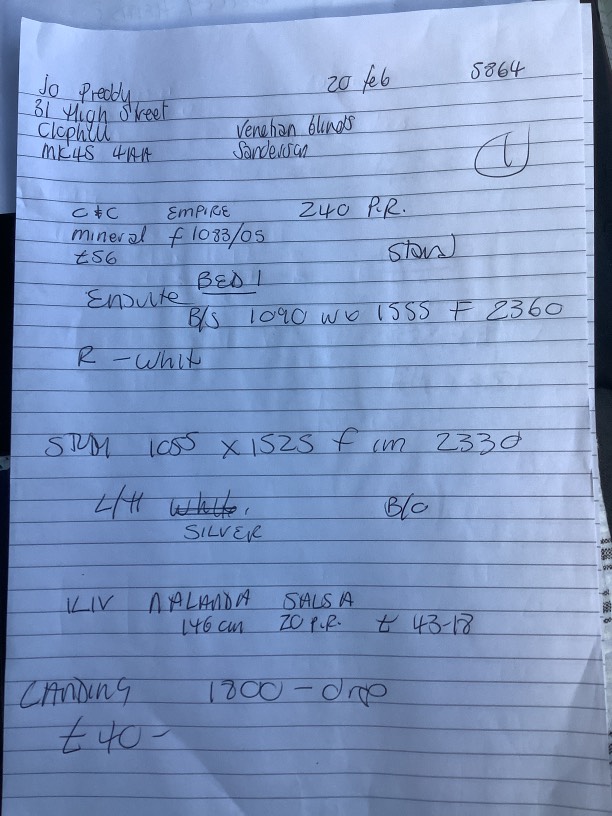 Jo Preddy 20 feb 5864
31 High Street
Clophill Venetian blinds
MK45 4AA Sanderson
1
C&C EMPIRE 240 P.R.
mineral F1083/05
£56
BED 1
Ensuite
B/S 1090 W 1555 F 2360
R - White
1055 x 1525 F 2330
L/H White B/O
SILVER
ILIV NALANDA SALSA
146 cm 20 P.R. £ 43-18
LANDING 1800 - drop
£40 -